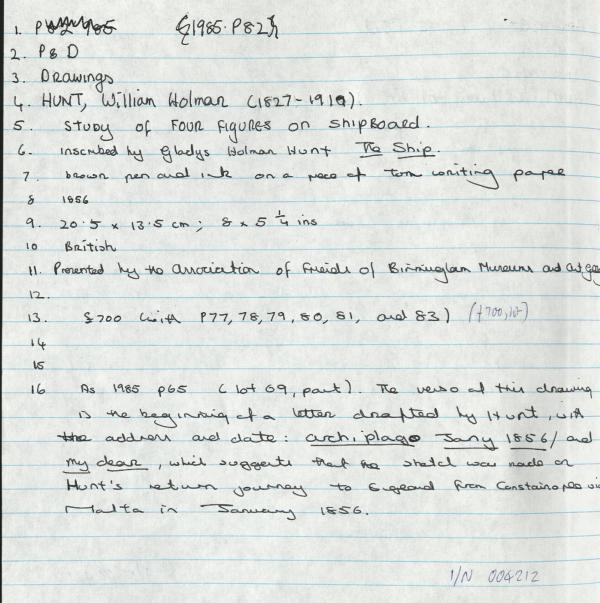 1. P82 985 {1985.P82}
2. P&D
3. Drawings
4. HUNT, William Holman (1827-1910).
5. Study of FOUR FIGURES on Shipboard.
6. inscribed by Gladys Holman Hunt The Ship.
7. brown pen and ink on a piece of torn writing paper
8 1856
9. 20.5 x 13.5 cm; 8 x 5 1/4 ins
10 British
11. Presented by the Association of Friends of Birmingham Museums and Art Ga
12.
13. £700 (with P77, 78, 79, 80, 81, and 83) (+700, 10)
14
15
16 As 1985 P65 (lot 69, part). The verso of this drawing
is the beginning of a letter drafted by Hunt, with
the address and date: archiplago Jany 1856/ and
my dear, which suggests that the sketch was made on
Hunt's return journey to England from Constantinople via
Malta in January 1856.
I/N 004212